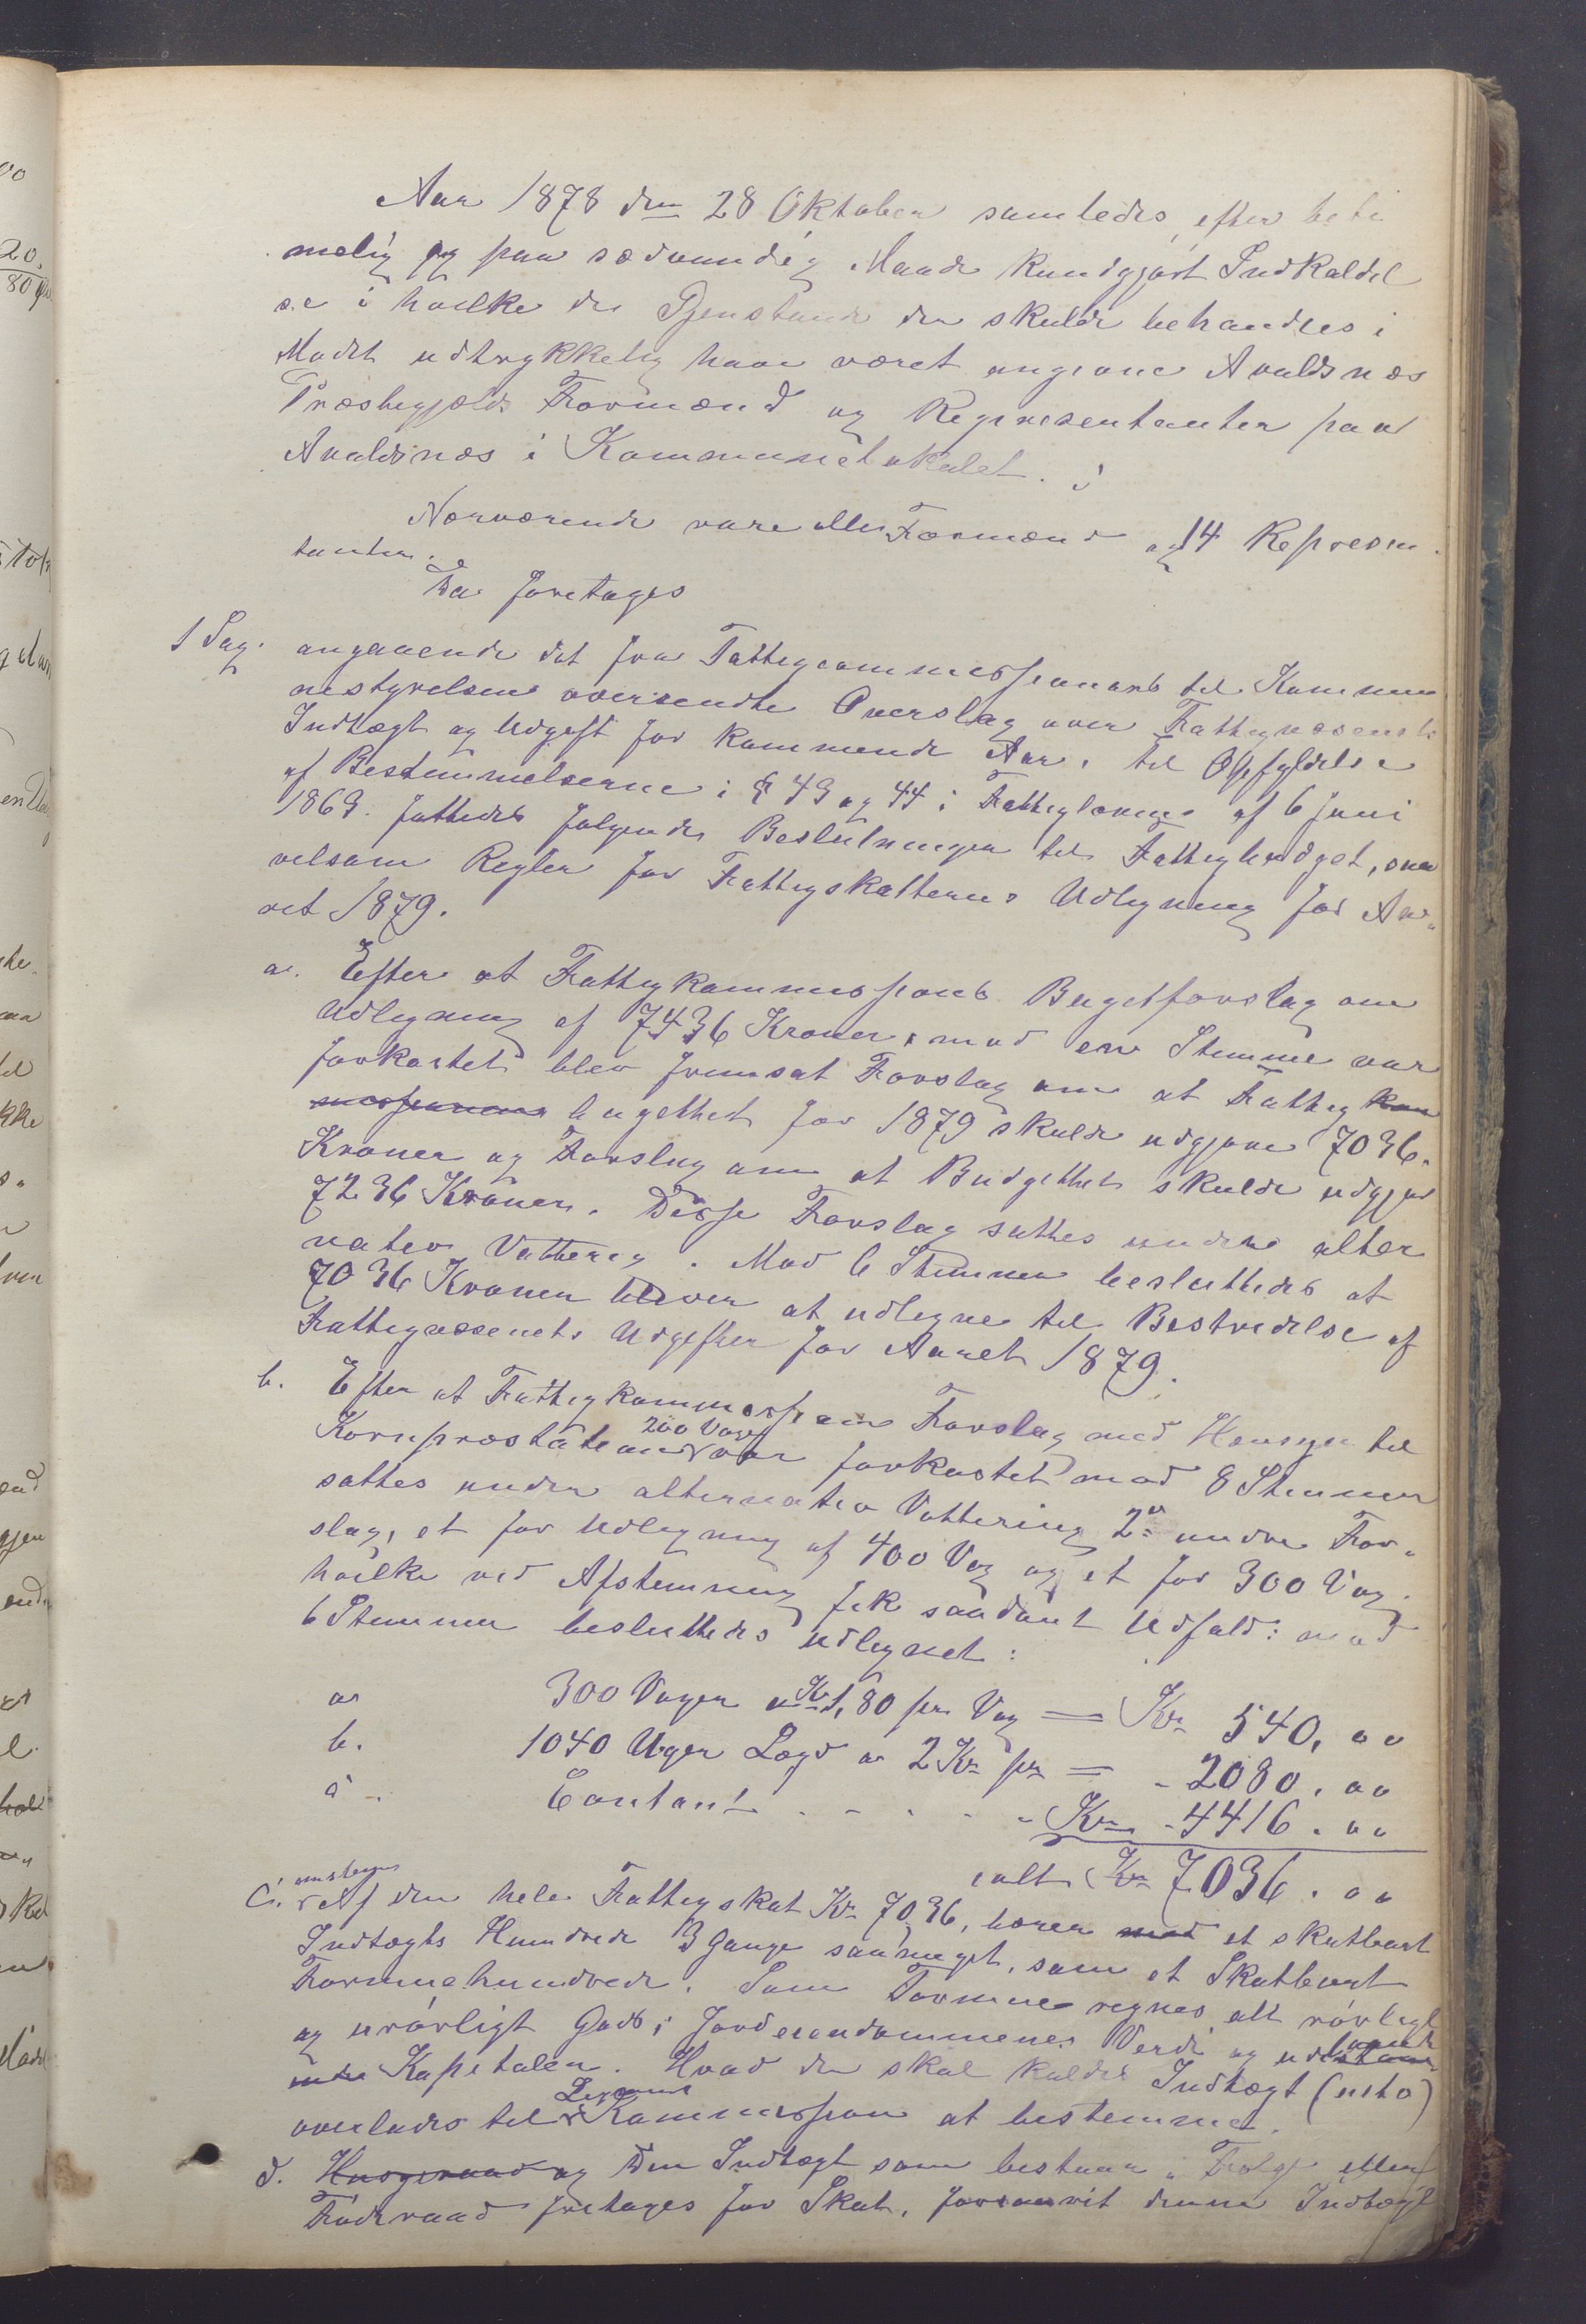 Aar 1878 den 28 Oktober samledes, efter beti
melig og paa sædvandig Maade kundgjort Indkaldel
se i hvilke de Gjenstande der skulde behandles i
Mødet udtrykkelig have været angivne Avaldsnæs
Præstegjælds Formænd og Representanter paa
Avaldsnæs i Kommunelokalet.
Nærværende vare alle Formænd og 14 Represen
tanter.
Da foretages
1 Sag. angaaende det fra Fattigcommissionens til Kommu
nestyrelsen oversendte Overslag over Fattigvæsenets
Indtægt og Udgift for kommende Aar. til Opfyldelse
af Bestemmelserne i § 43 og 44 i Fattigloven af 6 Juni
1863. fattedes følgende Beslutninger til Fattigbudget, saa
velsom Regler for Fattigskattens Udligning for Aa-
ret 1879.
a. Efter at Fattigkommissions Bugetforslag om
Udligning af 7436 Kroner, mod en Stemme var
forkastet blev fremsat Forslag om at Fattig kom
missionens bugettet for 1879 skulde udgjøre 7036.
Kroner og Forslag om at Budgettet skulde udgjør
7236 Kroner. Disse Forslag sattes under alter
nativ Vottering. Mod 6 Stemmer besluttedes at
7036 Kroner bliver at udligne til Bestridelse af
Fattigvæsenets Udgifter for Aaret 1879.
b. Efter at Fattigkommission Forslag med Hensyn til
200 Voger
Kornpræstationen var forkastet mod 8 Stemmer
sattes under alternativ Vottering 2de andre For-
slag, et for Udligning af 400 Vog og et for 300 Vog.
hvilke ved Afstemning fik saadant Udfald: mod
6 Stemmer besluttedes udlignet:
a 300 Voger a Kr 1,80 pr. Vog = Kr 540,00
b. 1040 Uger Lægd a 2 Kr pr = - 2080.00
c. Contant . - . . - Kr - 4416.00
ialt Kr 7036.00
c. Af den hele Fattigskat Kr 7036, bærer med et skatbart
Indtægts Hundrede 3 Gange saameget, som et Skatbart
Formuehundrede. Som Formue regnes alt rørligt
og urørligt Gods, Jordeiendommenes Verdi og udestaa
ende Kapitaler. Hvad der skal kaldes Indtægt (neto)
Lignings
overlades til Kommission at bestemme.
d. Husgeraad og Den Indtægt som bestaar i Følge eller
Føderaad fritages for Skat, forsaavit denne Indtægt